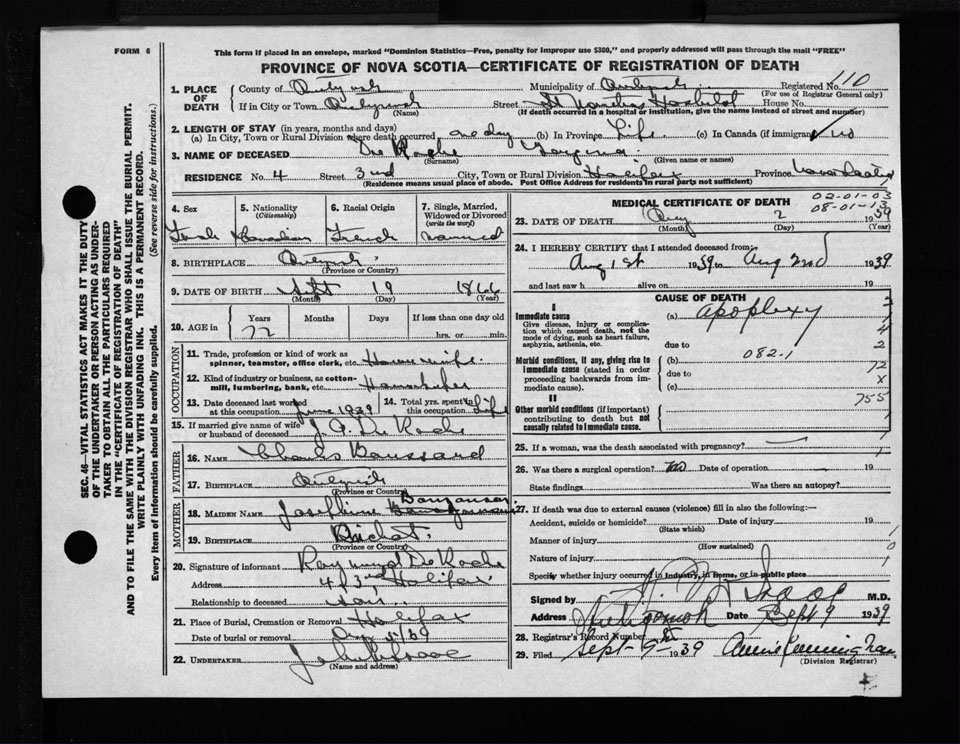 FORM 6
This form if placed in an envelope, marked "Dominion Statistics—Free, penalty for improper use $300," and properly addressed will pass through the mail "FREE"
PROVINCE OF NOVA SCOTIA—CERTIFICATE OF REGISTRATION OF DEATH
SEC. 46—VITAL STATISTICS ACT MAKES IT THE DUTY
OF THE UNDERTAKER OR PERSON ACTING AS UNDER-
TAKER TO OBTAIN ALL THE PARTICULARS REQUIRED
IN THE "CERTIFICATE OF REGISTRATION OF DEATH"
AND TO FILE THE SAME WITH THE DIVISION REGISTRAR WHO SHALL ISSUE THE BURIAL PERMIT.
WRITE PLAINLY WITH UNFADING INK. THIS IS A PERMANENT RECORD.
Every item of information should be carefully supplied. (See reverse side for instructions.)
1. PLACE OF DEATH
County of Municipality of Registered No. 110
(For use of Registrar General only)
If in City or Town Street St House No.
(Name) (If death occurred in a hospital or institution, give the name instead of street and number)
2. LENGTH OF STAY (in years, months and days)
(a) In City, Town or Rural Division where death occurred one day (b) In Province Life (c) In Canada (if immigrant) no
3. NAME OF DECEASED De Roche
(Surname) (Given name or names)
RESIDENCE No. 4 Street 3rd City, Town or Rural Division Halifax Province Nova Scotia
(Residence means usual place of abode. Post Office Address for residents in rural parts not sufficient)
4. Sex 5. Nationality (Citizenship) 6. Racial Origin 7. Single, Married, Widowed or Divorced (write the word)
Female Canadian French married
8. BIRTHPLACE
(Province or Country)
9. DATE OF BIRTH Sept 19 1866
(Month) (Day) (Year)
10. AGE in Years Months Days If less than one day old
72 hrs. or min.
OCCUPATION
11. Trade, profession or kind of work as spinner, teamster, office clerk, etc. Housewife
12. Kind of industry or business, as cotton-mill, lumbering, bank, etc.
13. Date deceased last worked at this occupation June 1939 14. Total yrs. spent in this occupation Life
15. If married give name of wife or husband of deceased De Roche
FATHER
16. NAME Charles Boussard
17. BIRTHPLACE
(Province or Country)
MOTHER
18. MAIDEN NAME Josephine
19. BIRTHPLACE
(Province or Country)
20. Signature of informant Raymond De Roche
Address 4 3rd Halifax
Relationship to deceased son
21. Place of Burial, Cremation or Removal Halifax
Date of burial or removal Aug 5/39
22. UNDERTAKER
(Name and address)
MEDICAL CERTIFICATE OF DEATH
02-01-03
08-01-13
23. DATE OF DEATH Aug 2 1939
(Month) (Day) (Year)
24. I HEREBY CERTIFY that I attended deceased from:
Aug 1st 1939 to Aug 2nd 1939
and last saw h alive on 19
CAUSE OF DEATH
I
Immediate cause
Give disease, injury or complication which caused death, not the mode of dying, such as heart failure, asphyxia, asthenia, etc.
(a) apoplexy
due to
Morbid conditions, if any, giving rise to immediate cause (stated in order proceeding backwards from immediate cause).
(b) 082-1
due to
(c)
II
Other morbid conditions (if important) contributing to death but not causally related to immediate cause.
4
2
72
x
755
25. If a woman, was the death associated with pregnancy?
26. Was there a surgical operation? No Date of operation 19
State findings Was there an autopsy?
27. If death was due to external causes (violence) fill in also the following:
Accident, suicide or homicide? Date of injury 19
(State which)
Manner of injury
(How sustained)
Nature of injury
Specify whether injury occurred in industry, in home, or in public place
1
0
1
Signed by M.D.
Address Date Sept 9 1939
28. Registrar's Record Number
29. Filed Sept 9th 1939 Annie Cunningham
(Division Registrar)